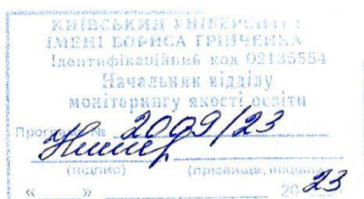 КИЇВСЬКИЙ УНІВЕРСИТЕТ
ІМЕНІ БОРИСА ГРІНЧЕНКА
Ідентифікаційний код 02136554
Начальник відділу
моніторингу якості освіти
Програма № 2009/23
(підпис) (прізвище, ініціали)
« » 20 23